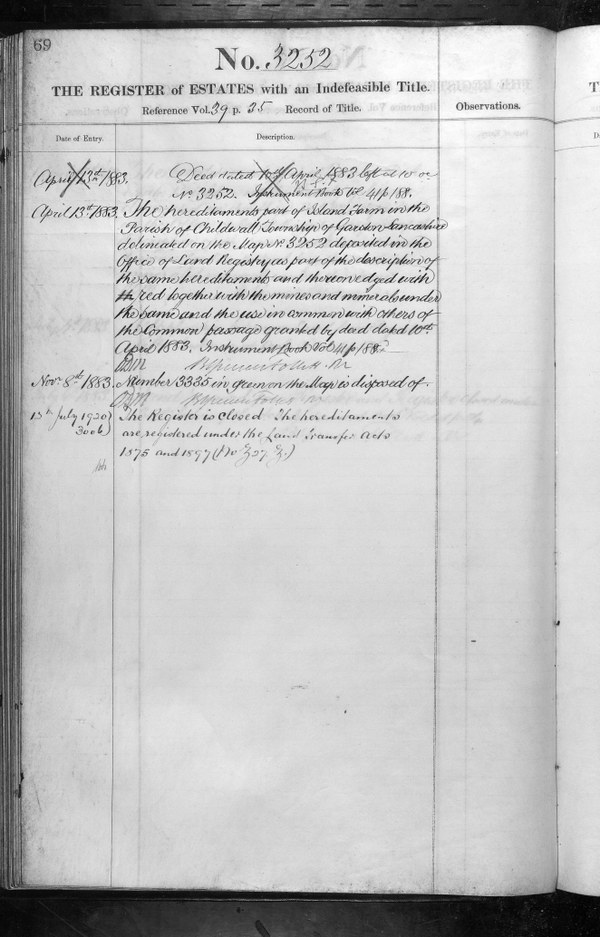 69
No. 3252
THE REGISTER of ESTATES with an Indefeasible Title.
Reference Vol. 39 p. 35 Record of Title.
Observations.
Date of Entry.
Description.
April 13th 1883. Deed dated 10th April 1883 left at 10
No. 3252. Instrument Book Vol 41 p 188.
April 13th 1883. The hereditaments part of Island Farm in the
Parish of Childwall Township of Garston Lancashire
delineated on the Map No. 3252 deposited in the
Office of Land Registry as part of the description of
the same hereditaments and thereon edged with
red together with the mines and minerals under
the same and the use in common with others of
the Common passage granted by deed dated 10th
April 1883. Instrument Book Vol 41 p 188.
Novr. 8th 1883. Number 3335 in green on the Map is disposed of
13th July 1920 The Register is closed The hereditaments
3006 are registered under the Land Transfer Acts
1875 and 1897